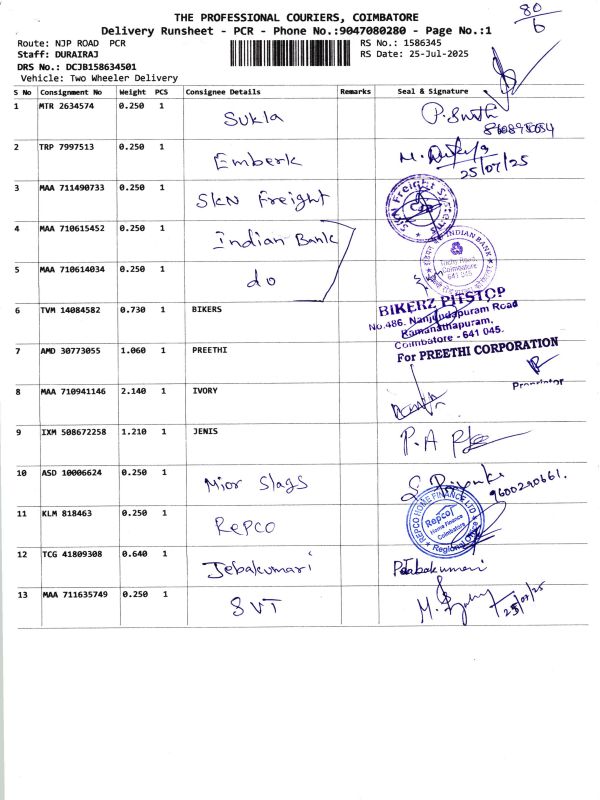 THE PROFESSIONAL COURIERS, COIMBATORE
80
6
Delivery Runsheet - PCR - Phone No.:9047080280 - Page No.:1
Route: NJP ROAD PCR
RS No.: 1586345
Staff: DURAIRAJ
RS Date: 25-Jul-2025
DRS No.: DCJB158634501
Vehicle: Two Wheeler Delivery
S No Consignment No Weight PCS Consignee Details Remarks Seal & Signature
1 MTR 2634574 0.250 1 Sukla
2 TRP 7997513 0.250 1 Emberk
25/07/25
3 MAA 711490733 0.250 1 SKN Freight
SKN Freight Systems
4 MAA 710615452 0.250 1 Indian Bank
INDIAN BANK
Coimbatore
641 045
5 MAA 710614034 0.250 1 do
6 TVM 14084582 0.730 1 BIKERS
BIKERZ PITSTOP
No.486, Nanjundapuram Road
Ramanathapuram,
Coimbatore - 641 045.
7 AMD 30773055 1.060 1 PREETHI
For PREETHI CORPORATION
Proprietor
8 MAA 710941146 2.140 1 IVORY
9 IXM 508672258 1.210 1 JENIS
10 ASD 10006624 0.250 1 Mior Slags
9600290661.
11 KLM 818463 0.250 1 Repco
REPCO HOME FINANCE LTD
Repco
Home Finance
Coimbatore
Regional Office
12 TCG 41809308 0.640 1 Jebakumari
13 MAA 711635749 0.250 1 SVT
25/07/25